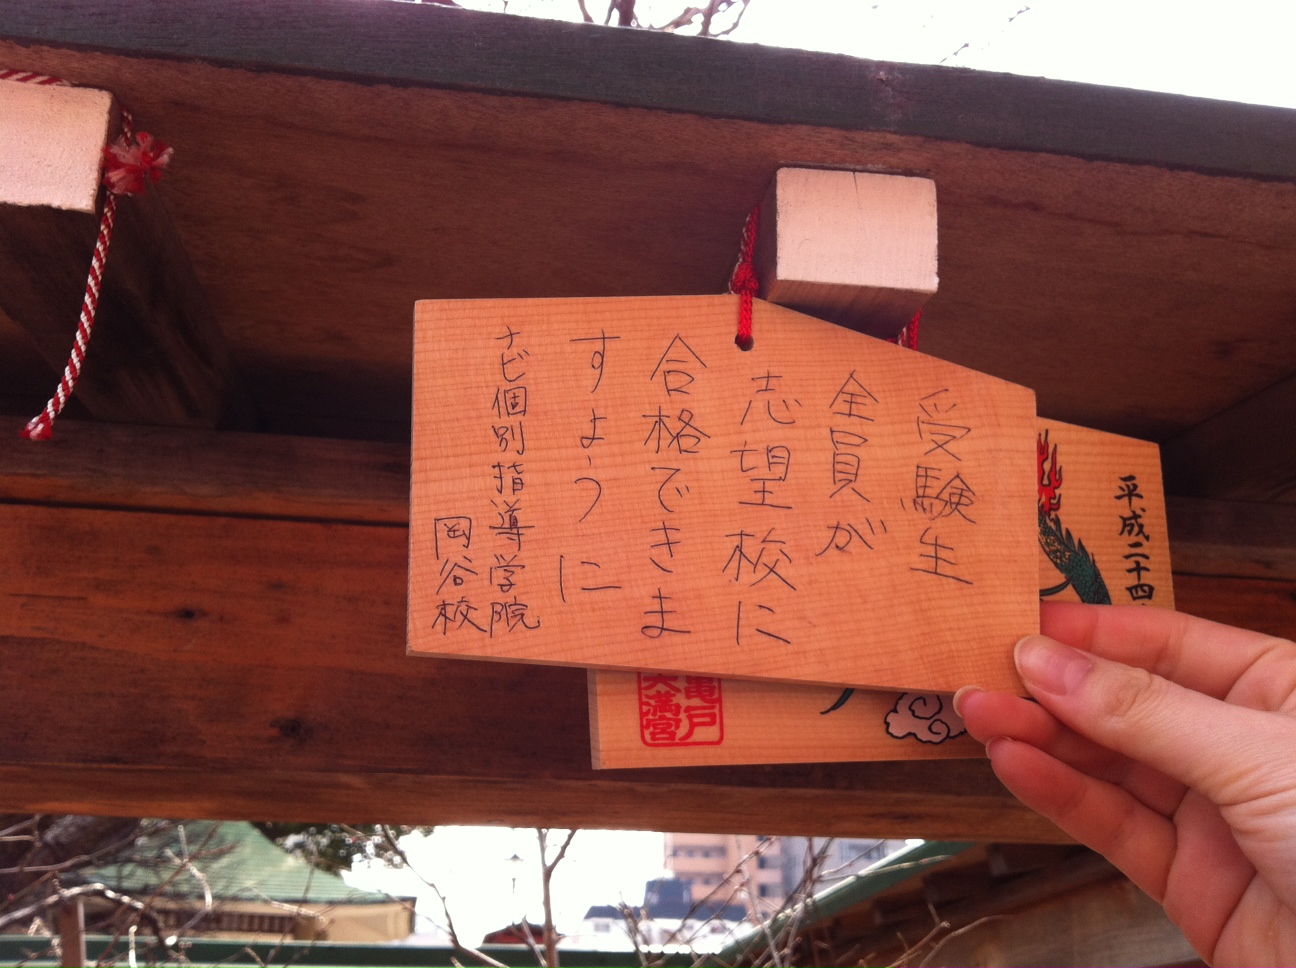 受験生
全員が
志望校に
合格できま
すように
ナビ個別指導学院
岡谷校
平成二十四
亀戸
天満宮